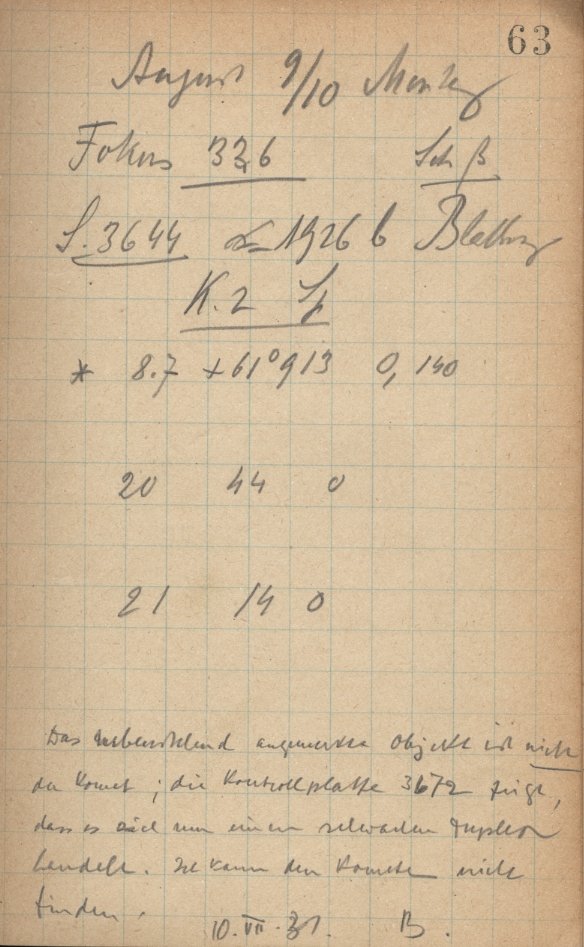 63
August 9/10 Montag
Fokus 33,6 Sch ß
S. 3644 1926 b Blathwayt
K. 2
* 8.7 +61°913 0,140
20 44 0
21 14 0
Das nebenstehend angemerkte Objekt ist nicht
der Komet; die Kontrollplatte 3672 zeigt,
dass es sich um einen schwachen Duplex
handelt. Ich kann den Kometen nicht
finden.
10. VII. 31. B.